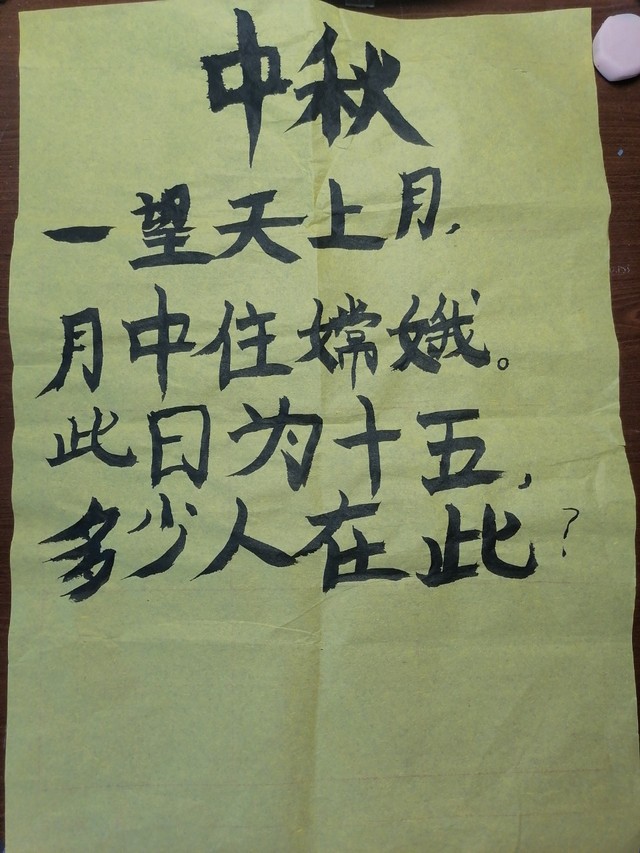 中秋
一望天上月,
月中住嫦娥。
此日为十五,
多少人在此?